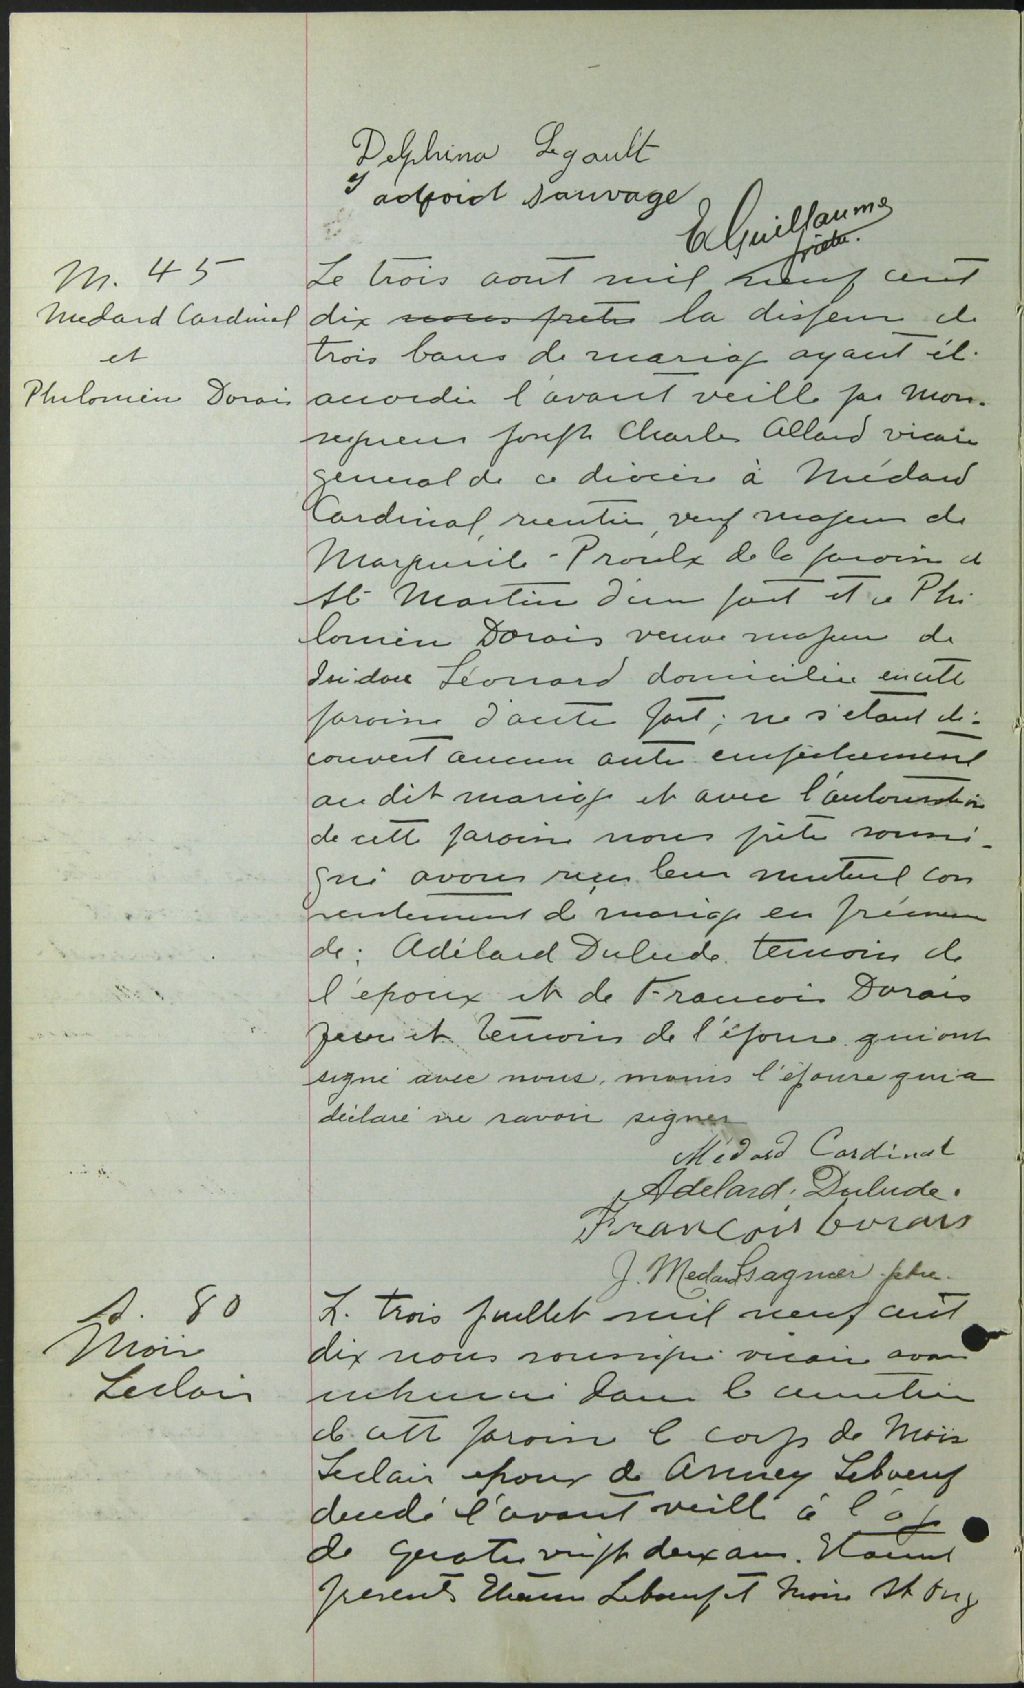 Delphina Legault
adjoid sauvage
E Guillaume
ptre.
M. 45
Medard Cardinal
et
Philomène Dorais
Le trois aout mil neuf cent
dix nous pretre la dispense de
trois bans de mariage ayant été
accordée l'avant veille par Mon-
seigneur Joseph Charles Allard vicaire
general de ce diocèse à Médard
Cardinal rentier veuf majeur de
Marguerite Proulx de la paroisse de
St Martin d'une part et de Phi
lomène Dorais veuve majeure de
Isidore Léonard domiciliée en cette
paroisse d'autre part; ne s'étant dé-
couvert aucun autre empêchement
au dit mariage et avec l'autorisation
de cette paroisse nous prêtre soussi-
gné avons reçu leur mutuel con
sentement de mariage en présence
de; Adélard Dulude temoin de
l'époux et de Francois Dorais
et témoin de l'épouse qui ont
signé avec nous, moins l'épouse qui a
déclaré ne savoir signer
Médard Cardinal
Adelard. Dulude.
François Dorais
J. Medard Gagnier ptre.
S. 80
Moise
Leclair
Le trois juillet mil neuf cent
dix nous soussigné vicaire avons
inhumé dans le cimetière
de cette paroisse le corps de Moise
Leclair époux de Anney Leboeuf
decedé l'avant veille à l'age
de quatre vingt deux ans. Etaient
présents Etienne Leboeuf et Moise St Ong